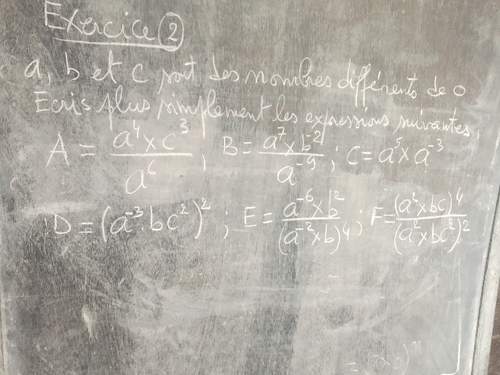 Exercice 2
a, b et c sont des nombres différents de 0
Ecris plus simplement les expressions suivantes,
A = (a⁴ × c³)/a⁶ ; B = (a⁷ × b⁻²)/a⁻⁵ ; C = a⁵ × a⁻³
D = (a⁻³ · bc²)² ; E = (a⁻⁶ × b²)/(a⁻² × b)⁴ ; F = (a² × bc)⁴/(a² × bc²)²